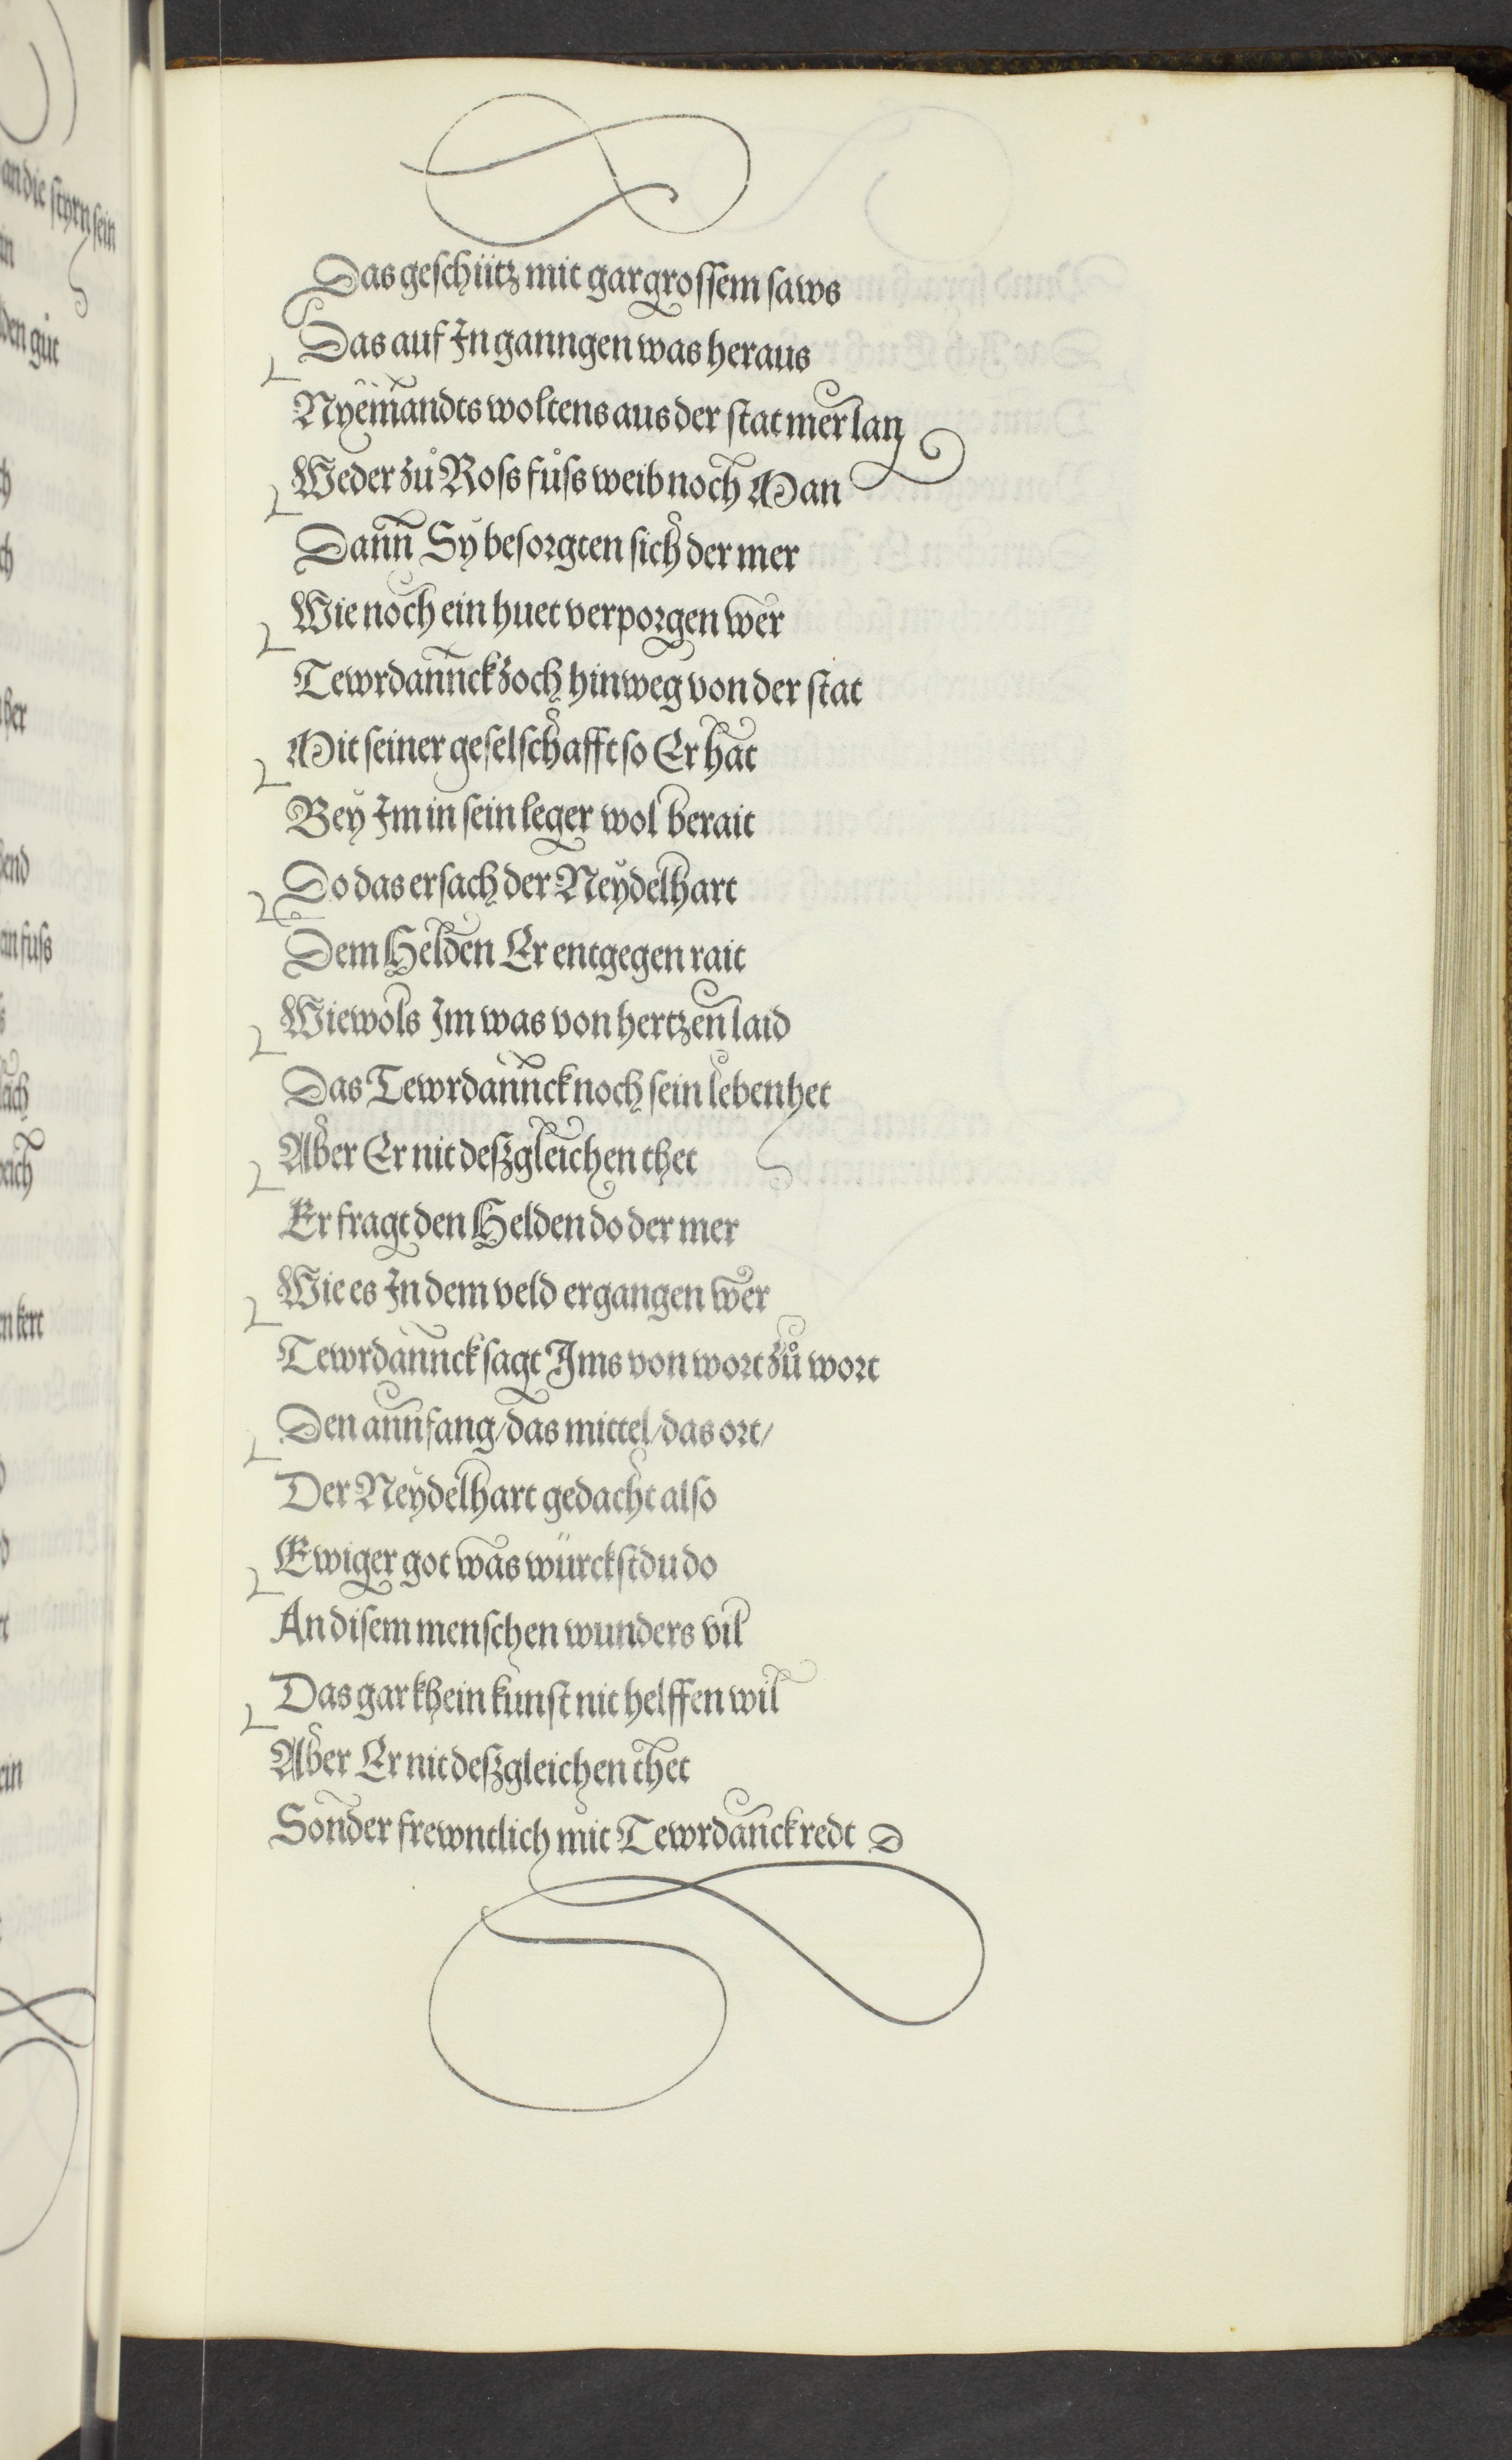 Das geschütz mit gar grossem saws
Das auf In ganngen was heraus
Nyemandts woltens aus der stat mer lan
Weder zů Ross fůss weib noch Man
Dann Sy besorgten sich der mer
Wie noch ein huet verporgen wer
Tewrdannck zoch hinweg von der stat
Mit seiner geselschafft so Er hat
Bey Im in sein leger wol berait
Do das ersach der Neydelhart
Dem Helden Er entgegen rait
Wiewols Im was von hertzen laid
Das Tewrdannck noch sein leben het
Aber Er nit deßgleichen thet
Er fragt den Helden do der mer
Wie es In dem veld ergangen wer
Tewrdannck sagt Ims von wort zů wort
Den annfang/das mittel/das ort/
Der Neydelhart gedacht also
Ewiger got was würckstdu do
An disem menschen wunders vil
Das gar khein kunst nit helffen wil
Aber Er nit deßgleichen thet
Sonder frewntlich mit Tewrdanck redt